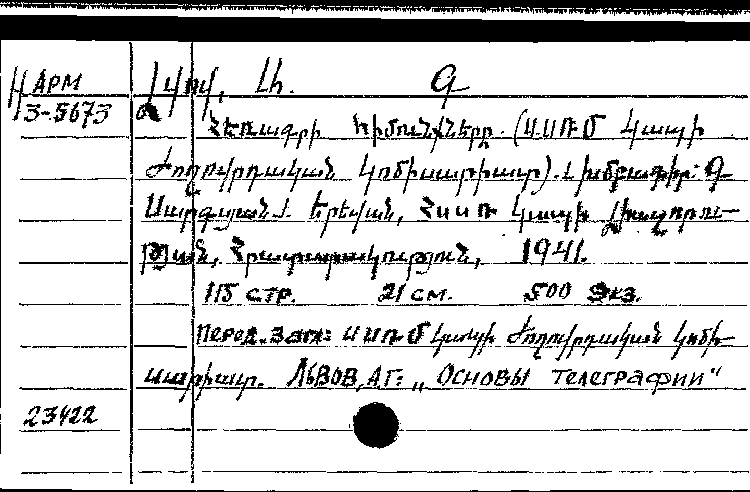 АРМ
3-5673
Լվով, Ա. Գ
Հեռագրի հիմունքները. (ՍՍՌՄ Կապի
Ժողովրդական կոմիսարիատ). Խմբագիր: Գ
Սարգսյան. Երևան, ՀՍՍՌ Կապի լիազորու-
թյան, Հրատարակություն, 1941.
115 стр. 21 см. 500 экз.
Перед. загл: ՍՍՌՄ Կապի Ժողովրդական կոմի-
սարիատ. Львов, АГ: „Основы телеграфии“
23422